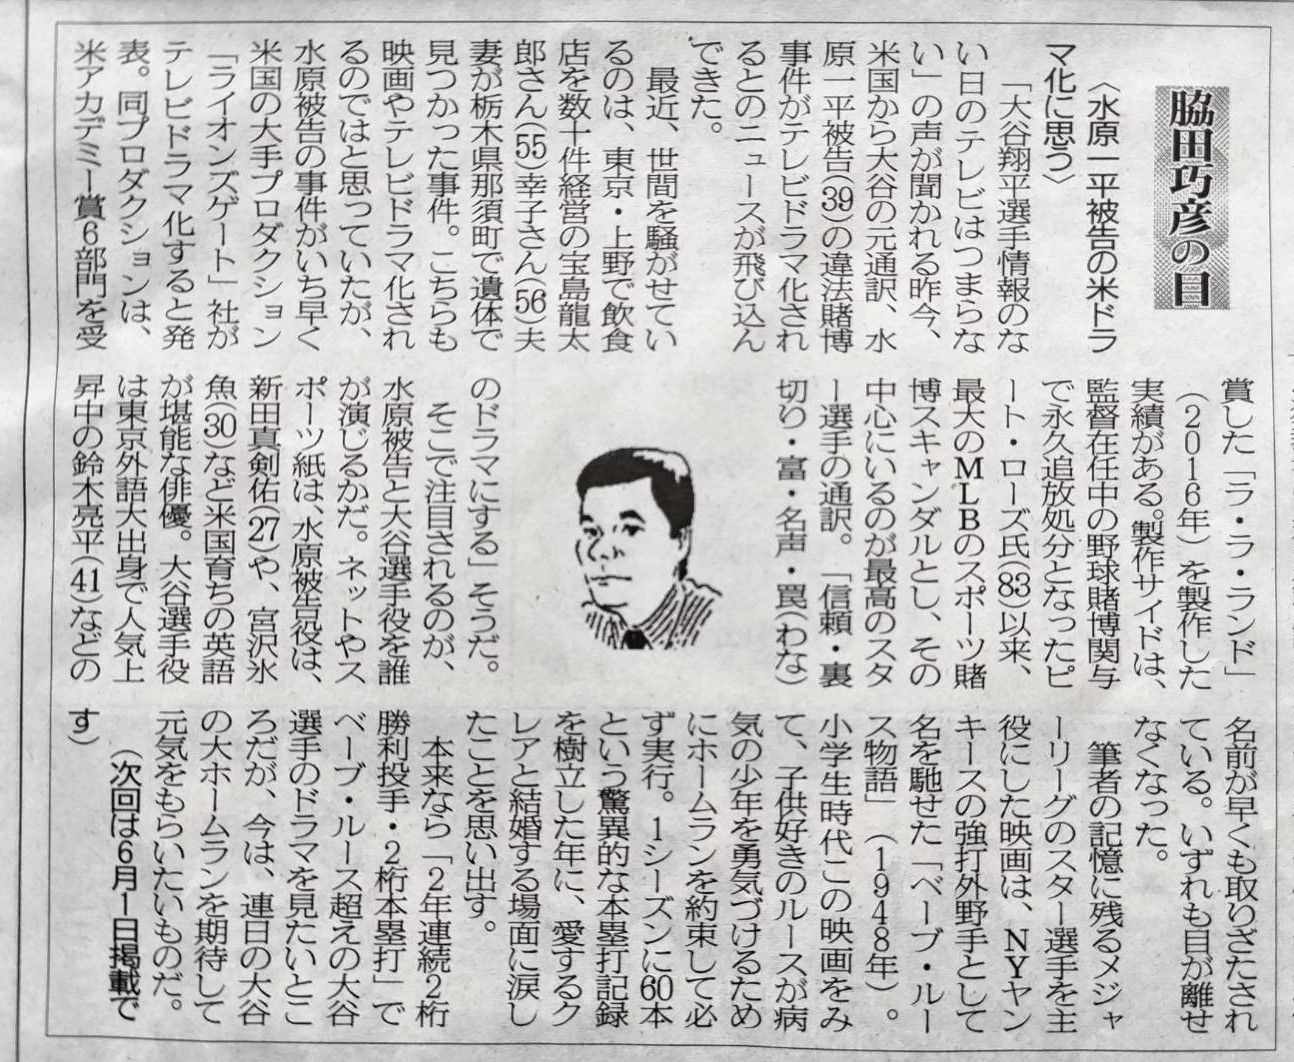 脇田巧彦の目
〈水原一平被告の米ドラ
マ化に思う〉
「大谷翔平選手情報のな
い日のテレビはつまらな
い」の声が聞かれる昨今、
米国から大谷の元通訳、水
原一平被告(39)の違法賭博
事件がテレビドラマ化され
るとのニュースが飛び込ん
できた。
最近、世間を騒がせてい
るのは、東京・上野で飲食
店を数十件経営の宝島龍太
郎さん(55)幸子さん(56)夫
妻が栃木県那須町で遺体で
見つかった事件。こちらも
映画やテレビドラマ化され
るのではと思っていたが、
水原被告の事件がいち早く
米国の大手プロダクション
「ライオンズゲート」社が
テレビドラマ化すると発
表。同プロダクションは、
米アカデミー賞6部門を受
賞した「ラ・ラ・ランド」
(2016年)を製作した
実績がある。製作サイドは、
監督在任中の野球賭博関与
で永久追放処分となったピ
ート・ローズ氏(83)以来、
最大のMLBのスポーツ賭
博スキャンダルとし、その
中心にいるのが最高のスタ
ー選手の通訳。「信頼・裏
切り・富・名声・罠(わな)
のドラマにする」そうだ。
そこで注目されるのが、
水原被告と大谷選手役を誰
が演じるかだ。ネットやス
ポーツ紙は、水原被告役は、
新田真剣佑(27)や、宮沢氷
魚(30)など米国育ちの英語
が堪能な俳優。大谷選手役
は東京外語大出身で人気上
昇中の鈴木亮平(41)などの
名前が早くも取りざたされ
ている。いずれも目が離せ
なくなった。
筆者の記憶に残るメジャ
ーリーグのスター選手を主
役にした映画は、NYヤン
キースの強打外野手として
名を馳せた「ベーブ・ルー
ス物語」(1948年)。
小学生時代この映画をみ
て、子供好きのルースが病
気の少年を勇気づけるため
にホームランを約束して必
ず実行。1シーズンに60本
という驚異的な本塁打記録
を樹立した年に、愛するク
レアと結婚する場面に涙し
たことを思い出す。
本来なら「2年連続2桁
勝利投手・2桁本塁打」で
ベーブ・ルース超えの大谷
選手のドラマを見たいとこ
ろだが、今は、連日の大谷
の大ホームランを期待して
元気をもらいたいものだ。
(次回は6月1日掲載で
す)